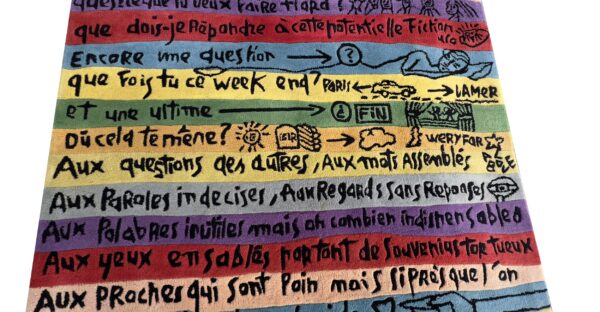 que tu veux faire
que dois-je Répondre à cette potentielle Fiction
Encore une question ?
que Fois tu ce week end? PARIS LAMER
et une ultime ? FIN
Où cela te mène? WERY FAR
Aux questions des autres, Aux mots Assemblés
Aux Paroles indecises, Aux Regards sans Reponses
Aux Palabres inutiles mais oh combien indispensables
Aux yeux ensablés portant de souvenirs tortueux
Aux PRoches qui sont Poin mais si près que l'on